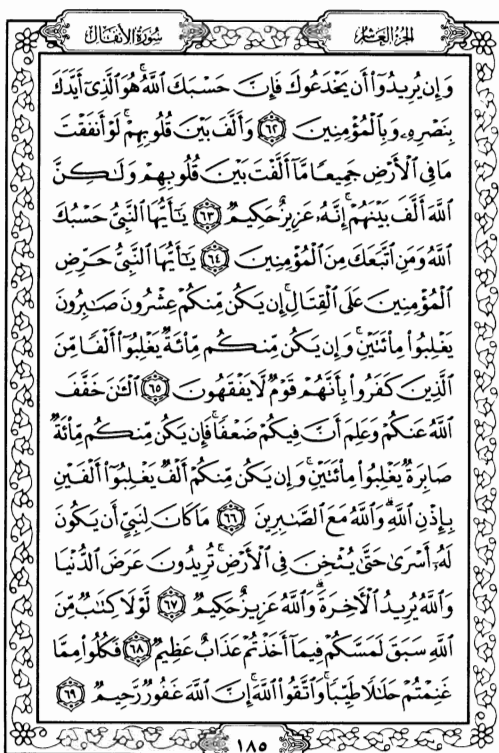 سُورَةُ الأَنفَالِ
الجُزءُ العَاشِرُ
وَإِن يُرِيدُوٓا۟ أَن يَخْدَعُوكَ فَإِنَّ حَسْبَكَ ٱللَّهُ ۚ هُوَ ٱلَّذِىٓ أَيَّدَكَ
بِنَصْرِهِۦ وَبِٱلْمُؤْمِنِينَ ٦٢ وَأَلَّفَ بَيْنَ قُلُوبِهِمْ ۚ لَوْ أَنفَقْتَ
مَا فِى ٱلْأَرْضِ جَمِيعًا مَّآ أَلَّفْتَ بَيْنَ قُلُوبِهِمْ وَلَـٰكِنَّ
ٱللَّهَ أَلَّفَ بَيْنَهُمْ ۚ إِنَّهُۥ عَزِيزٌ حَكِيمٌ ٦٣ يَـٰٓأَيُّهَا ٱلنَّبِىُّ حَسْبُكَ
ٱللَّهُ وَمَنِ ٱتَّبَعَكَ مِنَ ٱلْمُؤْمِنِينَ ٦٤ يَـٰٓأَيُّهَا ٱلنَّبِىُّ حَرِّضِ
ٱلْمُؤْمِنِينَ عَلَى ٱلْقِتَالِ ۚ إِن يَكُن مِّنكُمْ عِشْرُونَ صَـٰبِرُونَ
يَغْلِبُوا۟ مِا۟ئَتَيْنِ ۚ وَإِن يَكُن مِّنكُم مِّا۟ئَةٌ يَغْلِبُوٓا۟ أَلْفًا مِّنَ
ٱلَّذِينَ كَفَرُوا۟ بِأَنَّهُمْ قَوْمٌ لَّا يَفْقَهُونَ ٦٥ ٱلْـَٔـٰنَ خَفَّفَ
ٱللَّهُ عَنكُمْ وَعَلِمَ أَنَّ فِيكُمْ ضَعْفًا ۚ فَإِن يَكُن مِّنكُم مِّا۟ئَةٌ
صَابِرَةٌ يَغْلِبُوا۟ مِا۟ئَتَيْنِ ۚ وَإِن يَكُن مِّنكُمْ أَلْفٌ يَغْلِبُوٓا۟ أَلْفَيْنِ
بِإِذْنِ ٱللَّهِ ۗ وَٱللَّهُ مَعَ ٱلصَّـٰبِرِينَ ٦٦ مَا كَانَ لِنَبِىٍّ أَن يَكُونَ
لَهُۥٓ أَسْرَىٰ حَتَّىٰ يُثْخِنَ فِى ٱلْأَرْضِ ۚ تُرِيدُونَ عَرَضَ ٱلدُّنْيَا
وَٱللَّهُ يُرِيدُ ٱلْـَٔاخِرَةَ ۗ وَٱللَّهُ عَزِيزٌ حَكِيمٌ ٦٧ لَّوْلَا كِتَـٰبٌ مِّنَ
ٱللَّهِ سَبَقَ لَمَسَّكُمْ فِيمَآ أَخَذْتُمْ عَذَابٌ عَظِيمٌ ٦٨ فَكُلُوا۟ مِمَّا
غَنِمْتُمْ حَلَـٰلًا طَيِّبًا ۚ وَٱتَّقُوا۟ ٱللَّهَ ۚ إِنَّ ٱللَّهَ غَفُورٌ رَّحِيمٌ ٦٩
١٨٥